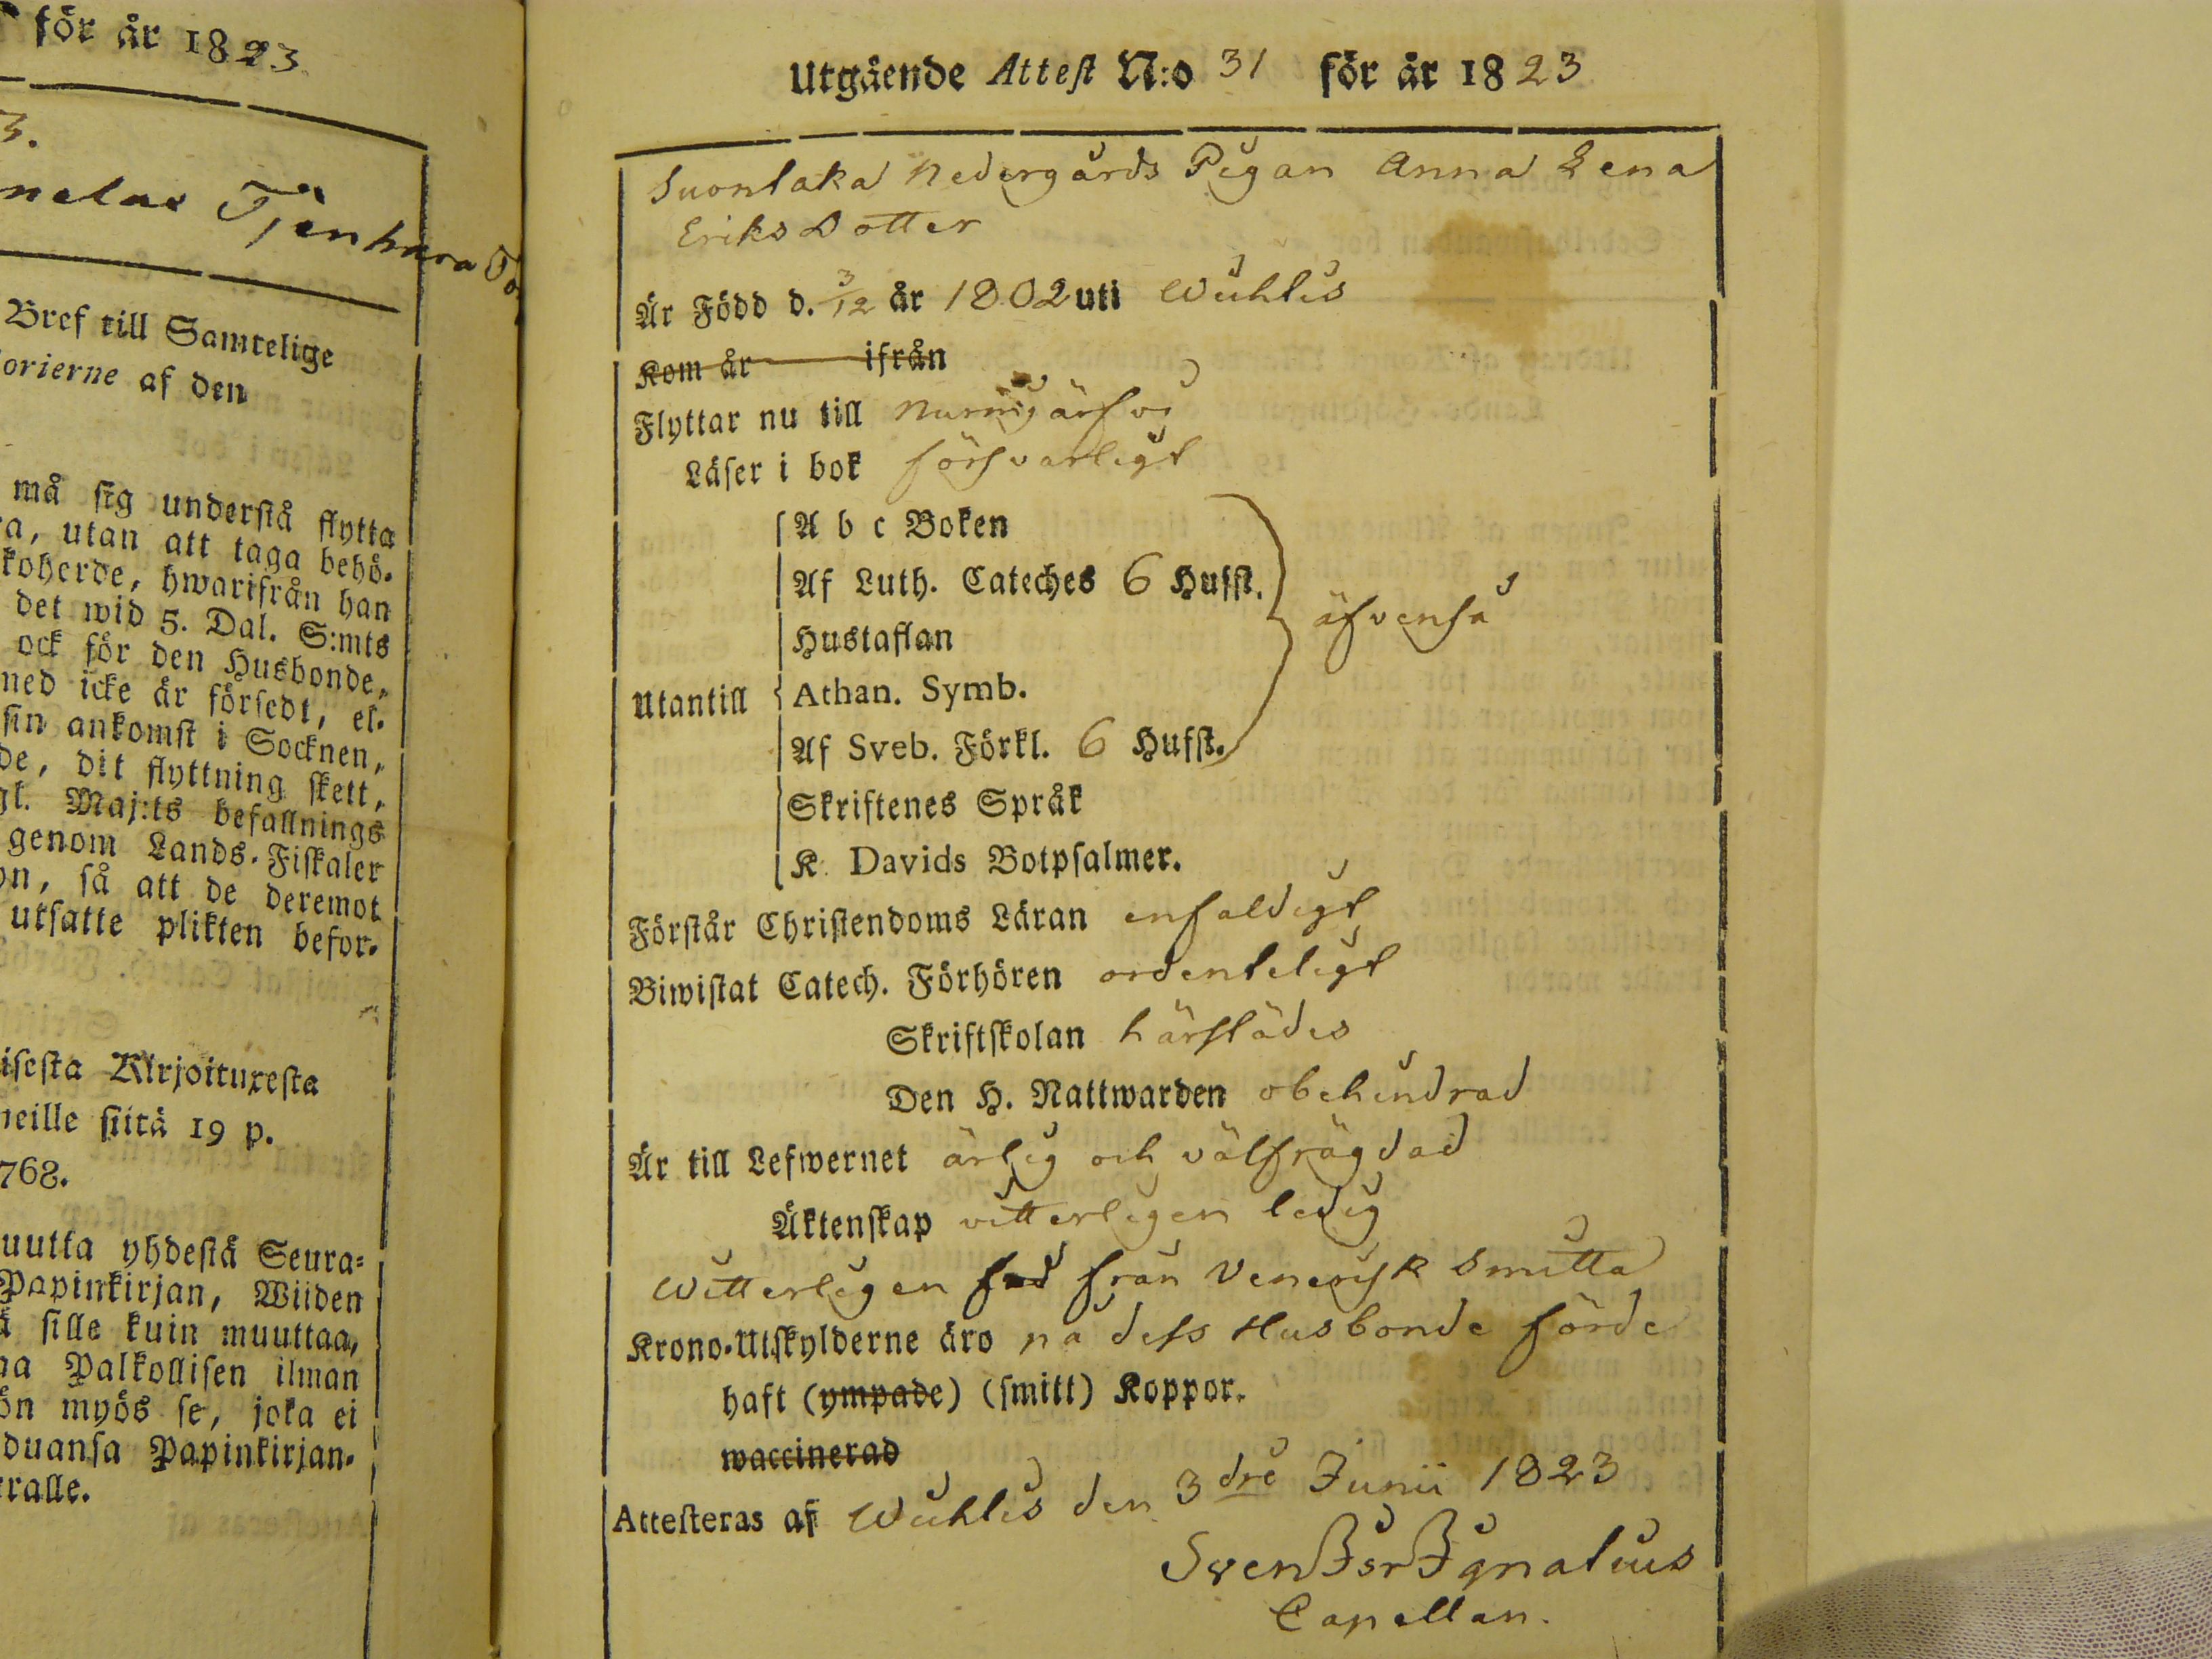 för år 1823
3.
nelas Tjenhara To
Bref till Samtelige
orierne af den
må sig understå flytta
a, utan att taga behö-
koherde, hwarifrån han
det wid 5. Dal. S:mts
ock för den Husbonde,
med icke är försedt, el-
sin ankomst i Socknen,
de, dit flyttning skett,
gl. Maj:ts befallnings
genom Lands-Fiskaler
on, så att de deremot
utsatte plikten befor-
isesta Kirjoituxesta
neille siitä 19 p.
768.
uutta yhdestä Seura-
Papinkirjan, Wiiden
ä sille kuin muuttaa,
na Palkollisen ilman
ön myös se, joka ei
duansa Papinkirjan-
rralle.
Utgående Attest N:o 31 för år 1823
Suontaka Nedergårds Pigan Anna Lena
Eriks Dotter
Är Född d. 3/12 år 1802 uti Wichtis
Kom år ifrån
Flyttar nu till Nurmijärfvi
Läser i bok försvarligt
A b c Boken
Af Luth. Cateches 6 Hufst.
äfvenså
Hustaflan
Utantill Athan. Symb.
Af Sveb. Förkl. 6 Hufst.
Skriftenes Språk
K. Davids Botpsalmer.
Förstår Christendoms Läran enfaldigt
Biwistat Catech. Förhören ordenteligt
Skriftskolan härstädes
Den H. Nattwarden obehindrad
Är till Lefwernet ärlig och välfrägdad
Äktenskap vitterligen ledig
Witterligen från Venerisk Smitta
Krono-Utskylderne äro på dess Husbonde förde
haft (ympade) (smitt) Koppor.
waccinerad
Attesteras af Wichtis den 3dre Junii 1823
Sven Isr Ignatius
Capellan.